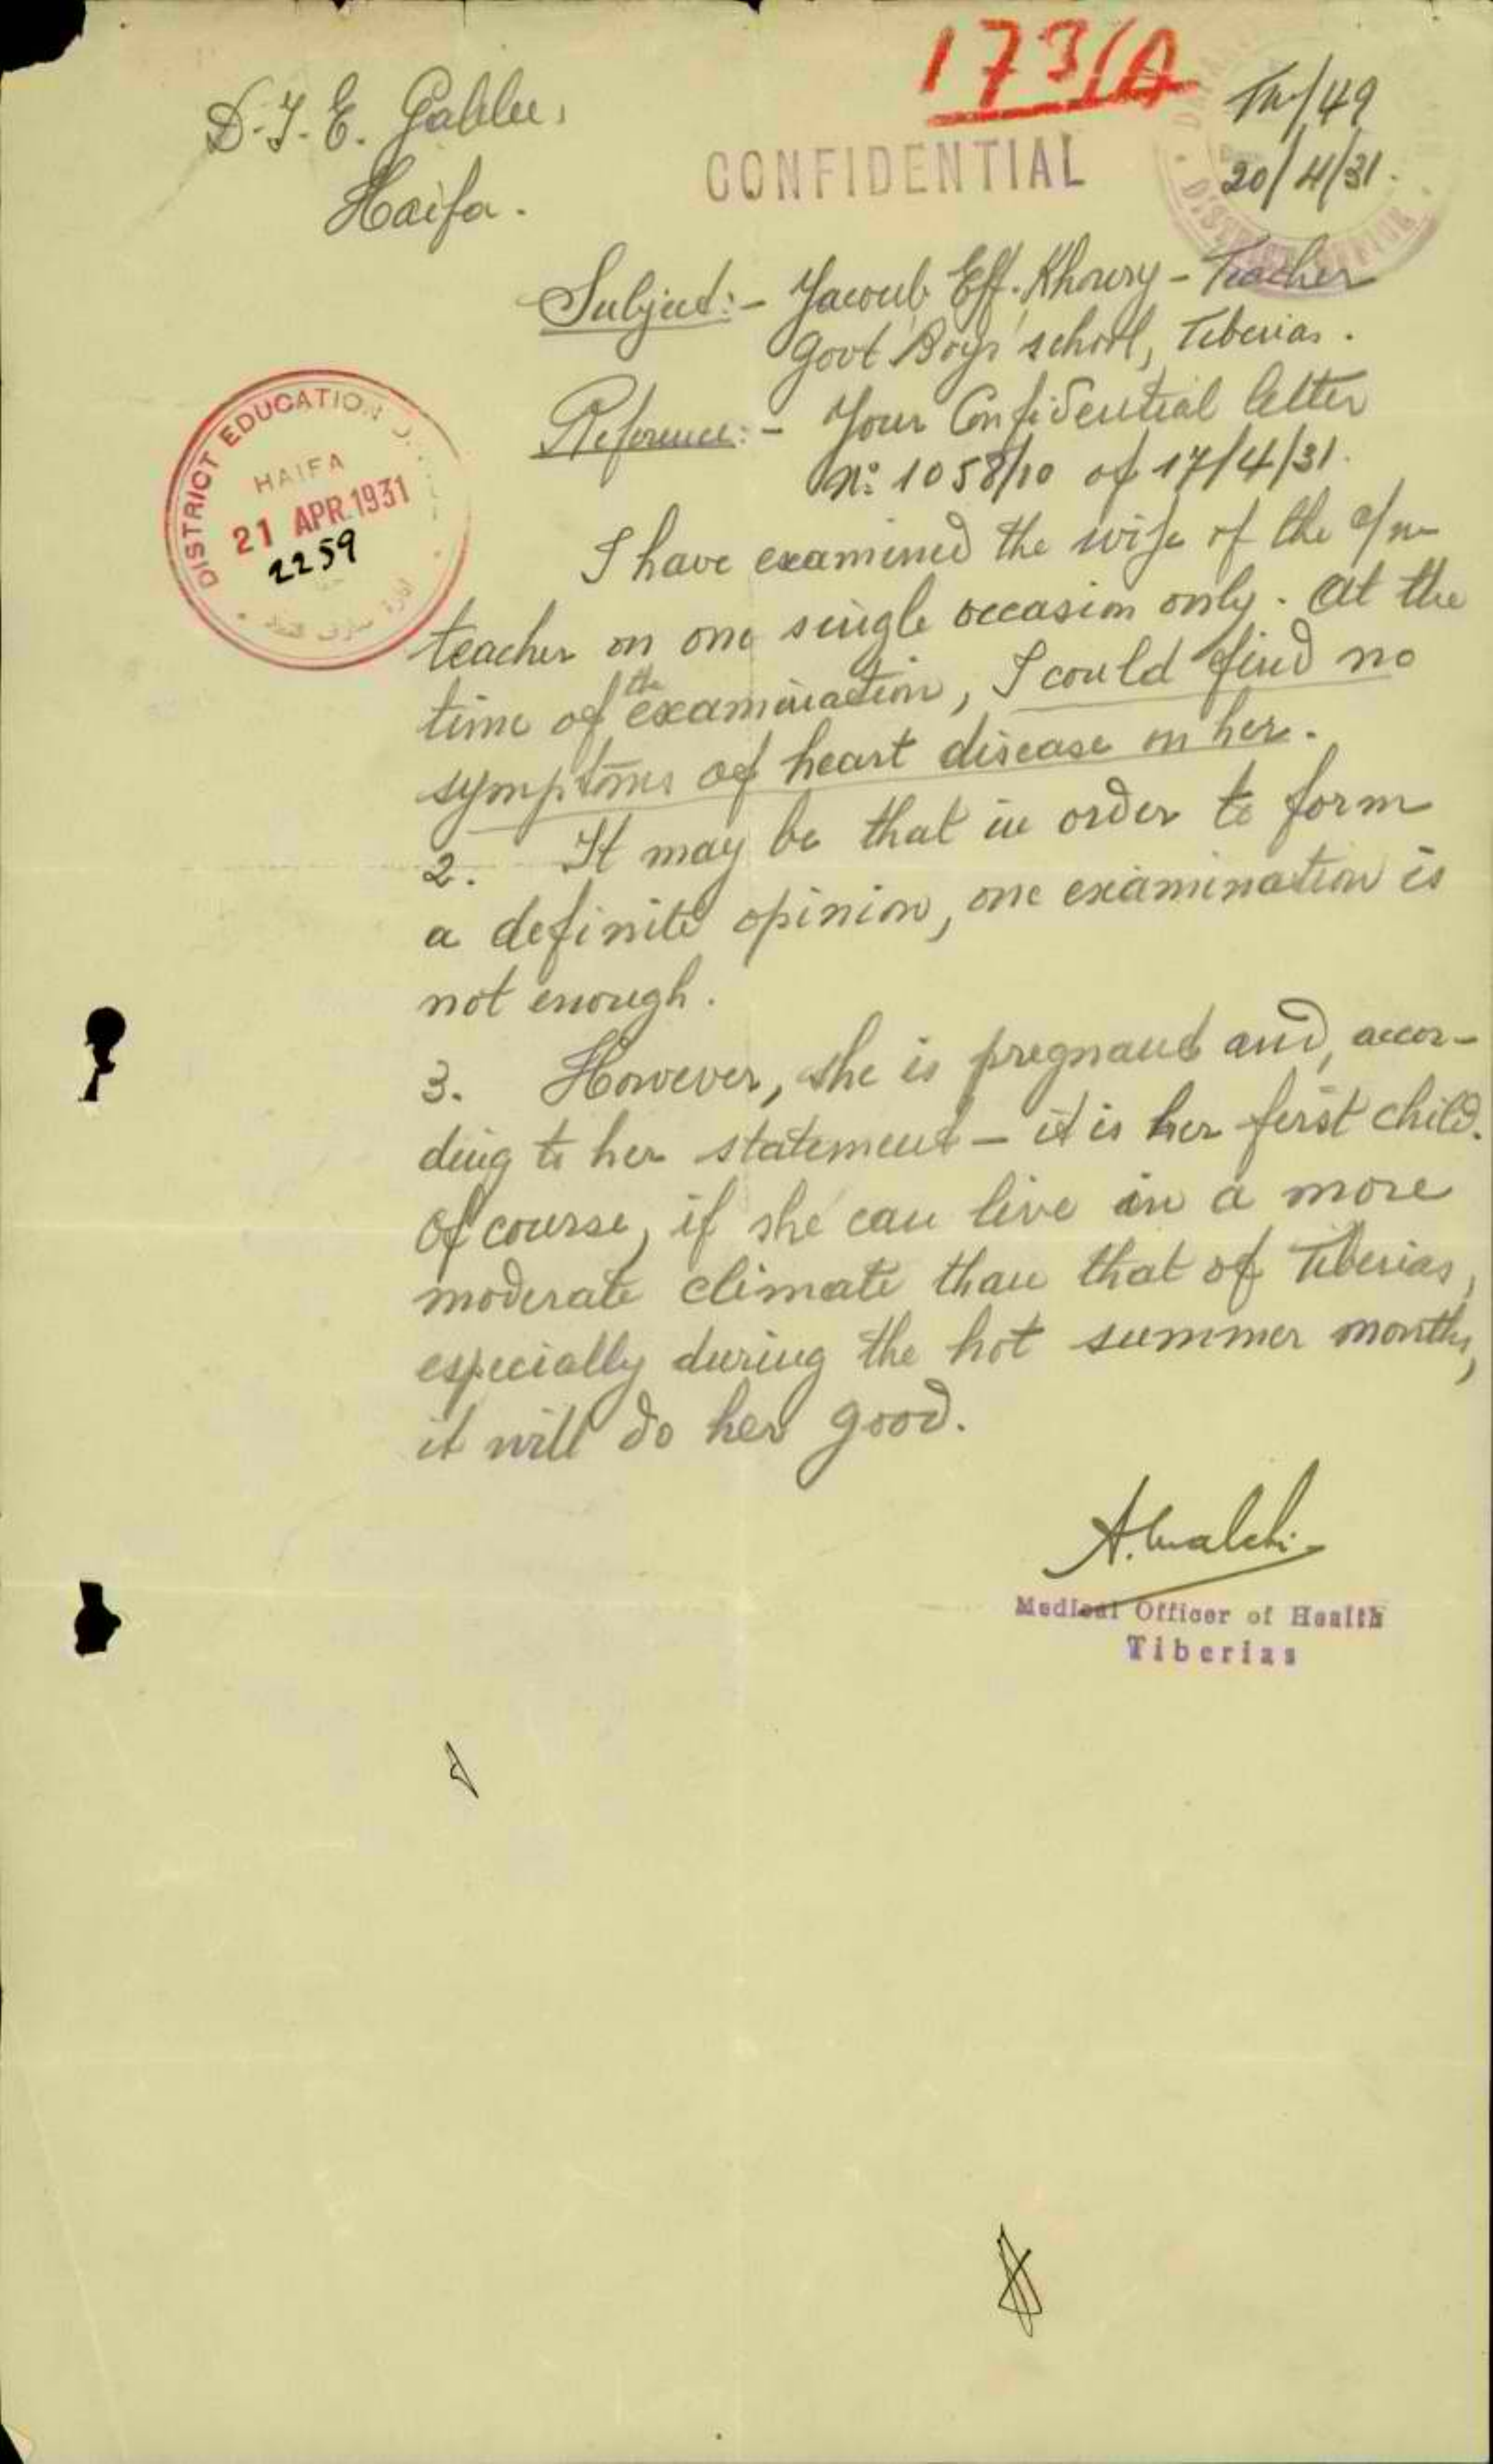 173/A
Tn/49
20/4/31.
D.I.E. Galilee,
Haifa.
CONFIDENTIAL
Subject:- Yacoub Eff. Khoury - Teacher
Govt Boys' school, Tiberias.
Reference:- Your Confidential letter
No: 1058/10 of 17/4/31.
DISTRICT EDUCATION
HAIFA
21 APR. 1931
2259
I have examined the wife of the a/m
teacher on one single occasion only. At the
time of the examination, I could find no
symptoms of heart disease on her.
2. It may be that in order to form
a definite opinion, one examination is
not enough.
3. However, she is pregnant and, accor-
ding to her statement - it is her first child.
Of course, if she can live in a more
moderate climate than that of Tiberias,
especially during the hot summer months,
it will do her good.
Medical Officer of Health
Tiberias